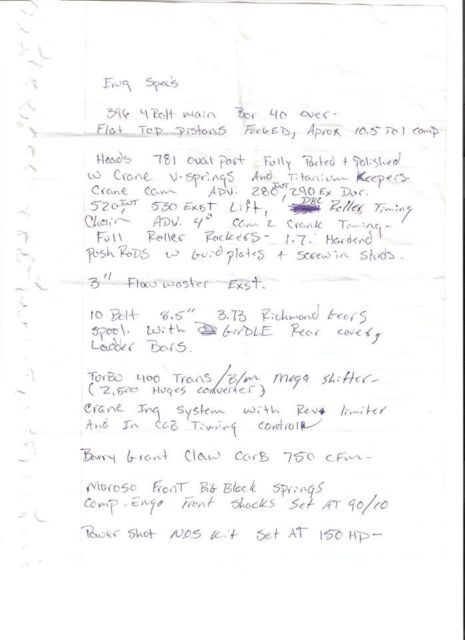 Eng Specs
396 4 Bolt main Bor 40 over-
Flat Top pistons Forged, Aprox 10.5 To 1 comp
Heads 781 oval port Fully Ported + polished
w Crane V-springs And Titanium Keepers.
Crane Cam ADV. 280 INT, 290 Ex Dur.
520 INT 530 Exst Lift, DBL Roller Timing
Chain ADV. 4° Cam 2 Crank Timing-
Full Roller Rockers- 1.7. Hardend
push Rods w Guid plates + screw in studs.
3" Flowmaster Exst.
10 Bolt 8.5" 3.73 Richmond Gears
spool. With GirDLE Rear cover,
Ladder Bars.
Turbo 400 Trans/B/m Mega shifter-
(2,500 Huges converter)
Crane Ing System with Rev limiter
And In CaB Timing control
Barry Grant Claw Carb 750 cfm-
Moroso Front Big Block Springs
Comp. Engo Front Shocks Set AT 90/10
Power Shot N.O.S Kit Set AT 150 HP-